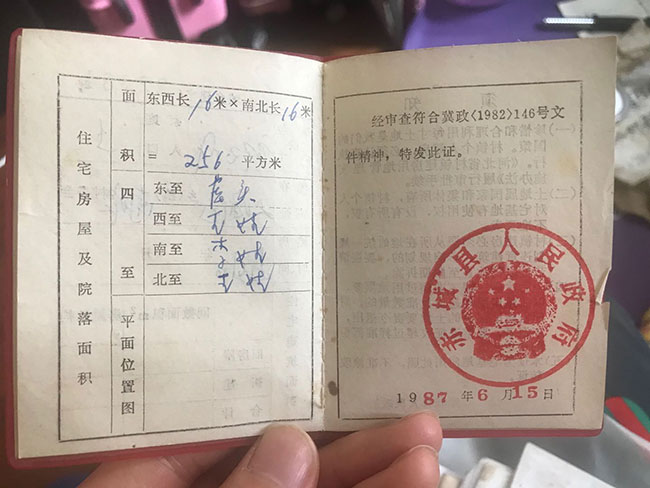 住宅房屋及院落面积
面积
东西长16米×南北长16米
= 256平方米
四至
东至
西至 王姓
南至 李姓
北至 王姓
平面位置图
经审查符合冀政〈1982〉146号文
件精神，特发此证。
赤城县人民政府
1987年6月15日